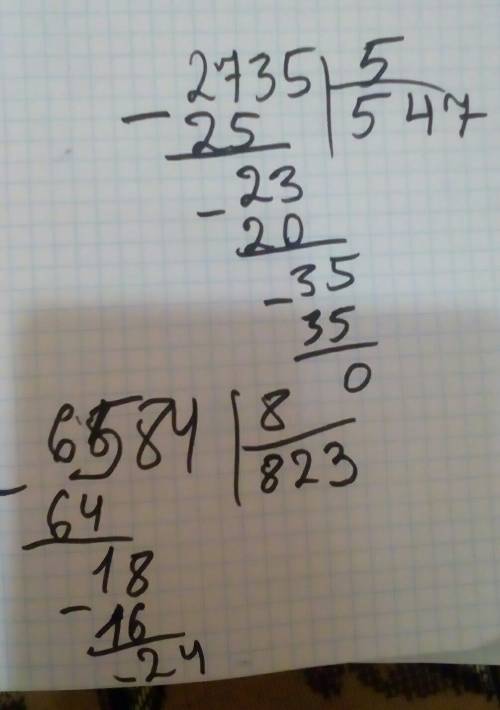 - 2735 | 5
25 547
- 23
20
- 35
35
0
- 6584 | 8
64 823
18
- 16
- 24